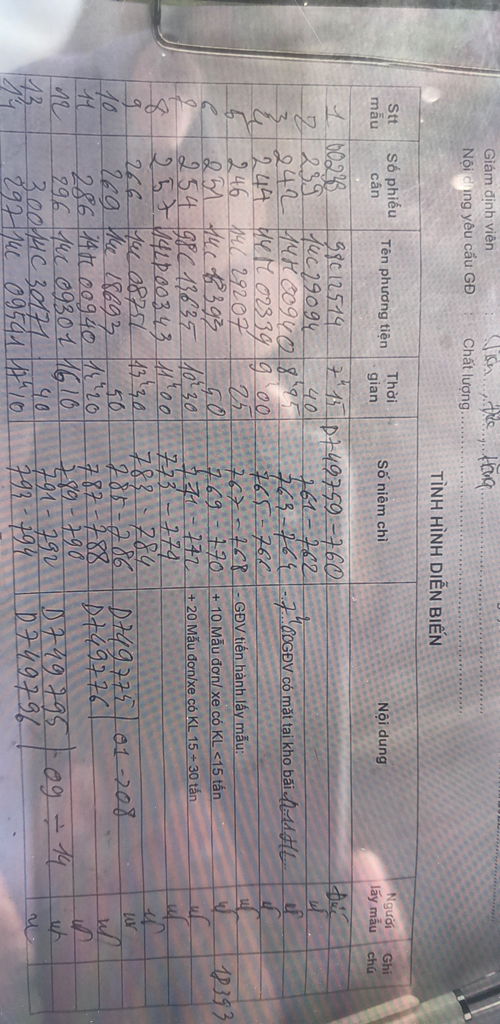 Giám định viên : Tiến, Đức, Hùng
Nội dung yêu cầu GĐ : Chất lượng
TÌNH HÌNH DIỄN BIẾN
Stt mẫu Số phiếu cân Tên phương tiện Thời gian Số niêm chì Nội dung Người lấy mẫu Ghi chú
1 00238 98C12514 7h15 D749759-760 Đức
2 239 14C29094 40 761-762 "
3 242 14H00940 8h25 763-764 -7h00GĐV có mặt tại kho bãi "
4 244 14H02339 9h00 765-766 "
5 246 14C29207 25 767-768 -GĐV tiến hành lấy mẫu: "
6 251 14C18393 50 769-770 + 10 Mẫu đơn/ xe có KL <15 tấn " 18393
7 254 98C13635 10h30 771-772 + 20 Mẫu đơn/xe có KL 15 ÷ 30 tấn "
8 257 14LD00343 11h00 773-774 "
9 266 14C08751 13h30 783-784 "
10 269 14C18693 50 785-786 D749775 "
11 286 14H00940 14h30 787-788 D749776 01-208 "
12 296 14C09301 16h10 789-790 "
13 300 14C3071 40 791-792 D749795 "
14 297 14C09541 17h10 793-794 D749796 09÷14 "